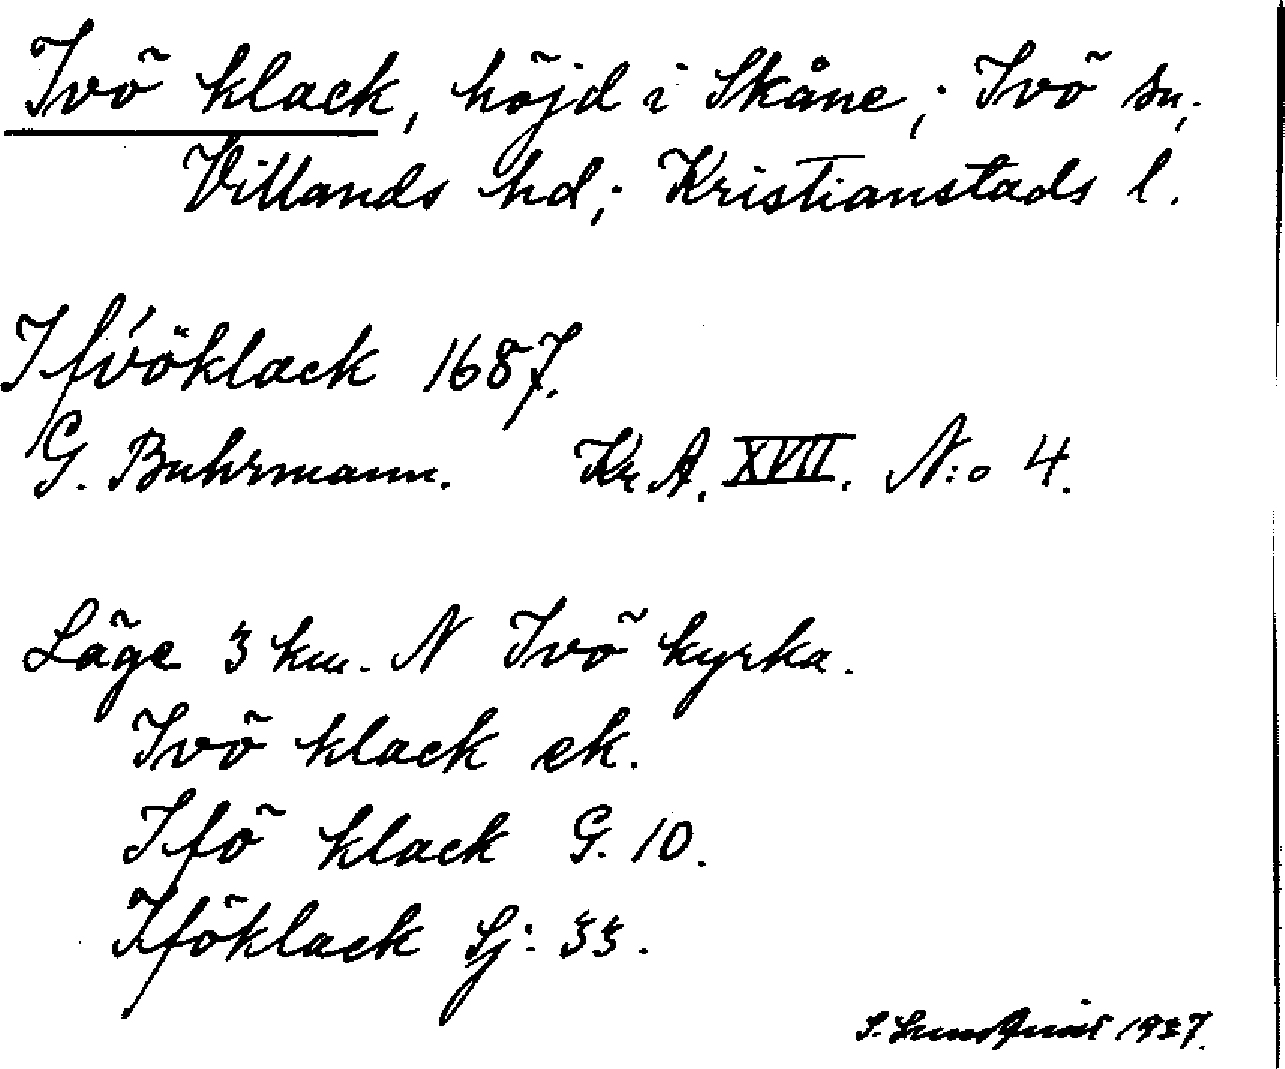 Ivö klack, höjd i Skåne; Ivö sn,
Villands hd; Kristianstads l.
Ifvöklack 1687.
G. Buhrmann. Kr. A. XVII. N:o 4.
Läge 3 km. N Ivö kyrka.
Ivö klack ek.
Ifö klack G. 10.
Iföklack Sj: 33.
S. Lundquist 1927.